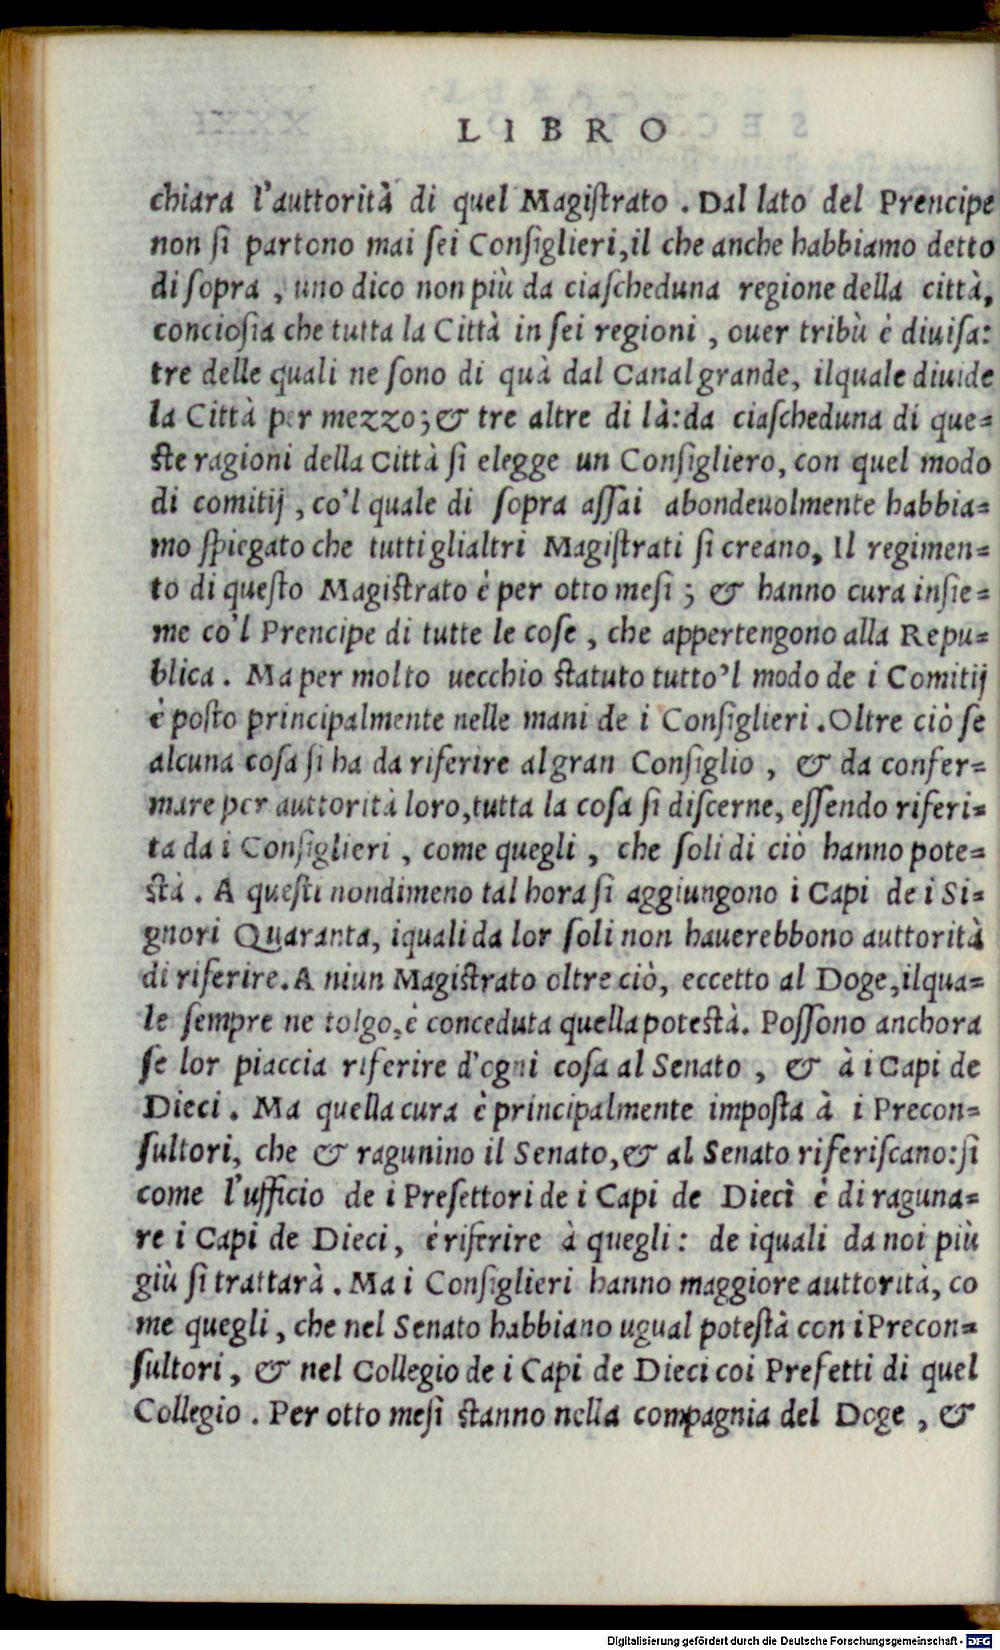 LIBRO
chiara l'auttorità di quel Magiſtrato. Dal lato del Prencipe
non ſi partono mai ſei Conſiglieri, il che anche habbiamo detto
di ſopra, uno dico non più da ciaſcheduna regione della città,
conciosia che tutta la Città in ſei regioni, ouer tribù è diuiſa:
tre delle quali ne ſono di quà dal Canal grande, ilquale diuide
la Città per mezzo; & tre altre di là: da ciaſcheduna di que=
ſte ragioni della Città ſi elegge un Conſigliero, con quel modo
di comitij, co'l quale di ſopra aſſai abondeuolmente habbia=
mo ſpiegato che tutti glialtri Magiſtrati ſi creano, Il regimen=
to di queſto Magiſtrato è per otto meſi; & hanno cura inſie=
me co'l Prencipe di tutte le coſe, che appertengono alla Repu=
blica. Ma per molto uecchio ſtatuto tutto'l modo de i Comitij
è poſto principalmente nelle mani de i Conſiglieri. Oltre ciò ſe
alcuna coſa ſi ha da riferire al gran Conſiglio, & da confer=
mare per auttorità loro, tutta la coſa ſi diſcerne, eſſendo riferi=
ta da i Conſiglieri, come quegli, che ſoli di ciò hanno pote=
ſtà. A queſti nondimeno tal hora ſi aggiungono i Capi de i Si=
gnori Quaranta, iquali da lor ſoli non hauerebbono auttorità
di riferire. A niun Magiſtrato oltre ciò, eccetto al Doge, ilqua=
le ſempre ne tolgo, è conceduta quella poteſtà. Poſſono anchora
ſe lor piaccia riferire d'ogni coſa al Senato, & à i Capi de
Dieci. Ma quella cura è principalmente impoſta à i Precon=
ſultori, che & ragunino il Senato, & al Senato riferiſcano: ſi
come l'ufficio de i Prefettori de i Capi de Dieci è di raguna=
re i Capi de Dieci, é riferire à quegli: de iquali da noi più
giù ſi trattarà. Ma i Conſiglieri hanno maggiore auttorità, co
me quegli, che nel Senato habbiano ugual poteſtà con i Precon=
ſultori, & nel Collegio de i Capi de Dieci coi Prefetti di quel
Collegio. Per otto meſi ſtanno nella compagnia del Doge, &
Digitalisierung gefördert durch die Deutsche Forschungsgemeinschaft - DFG